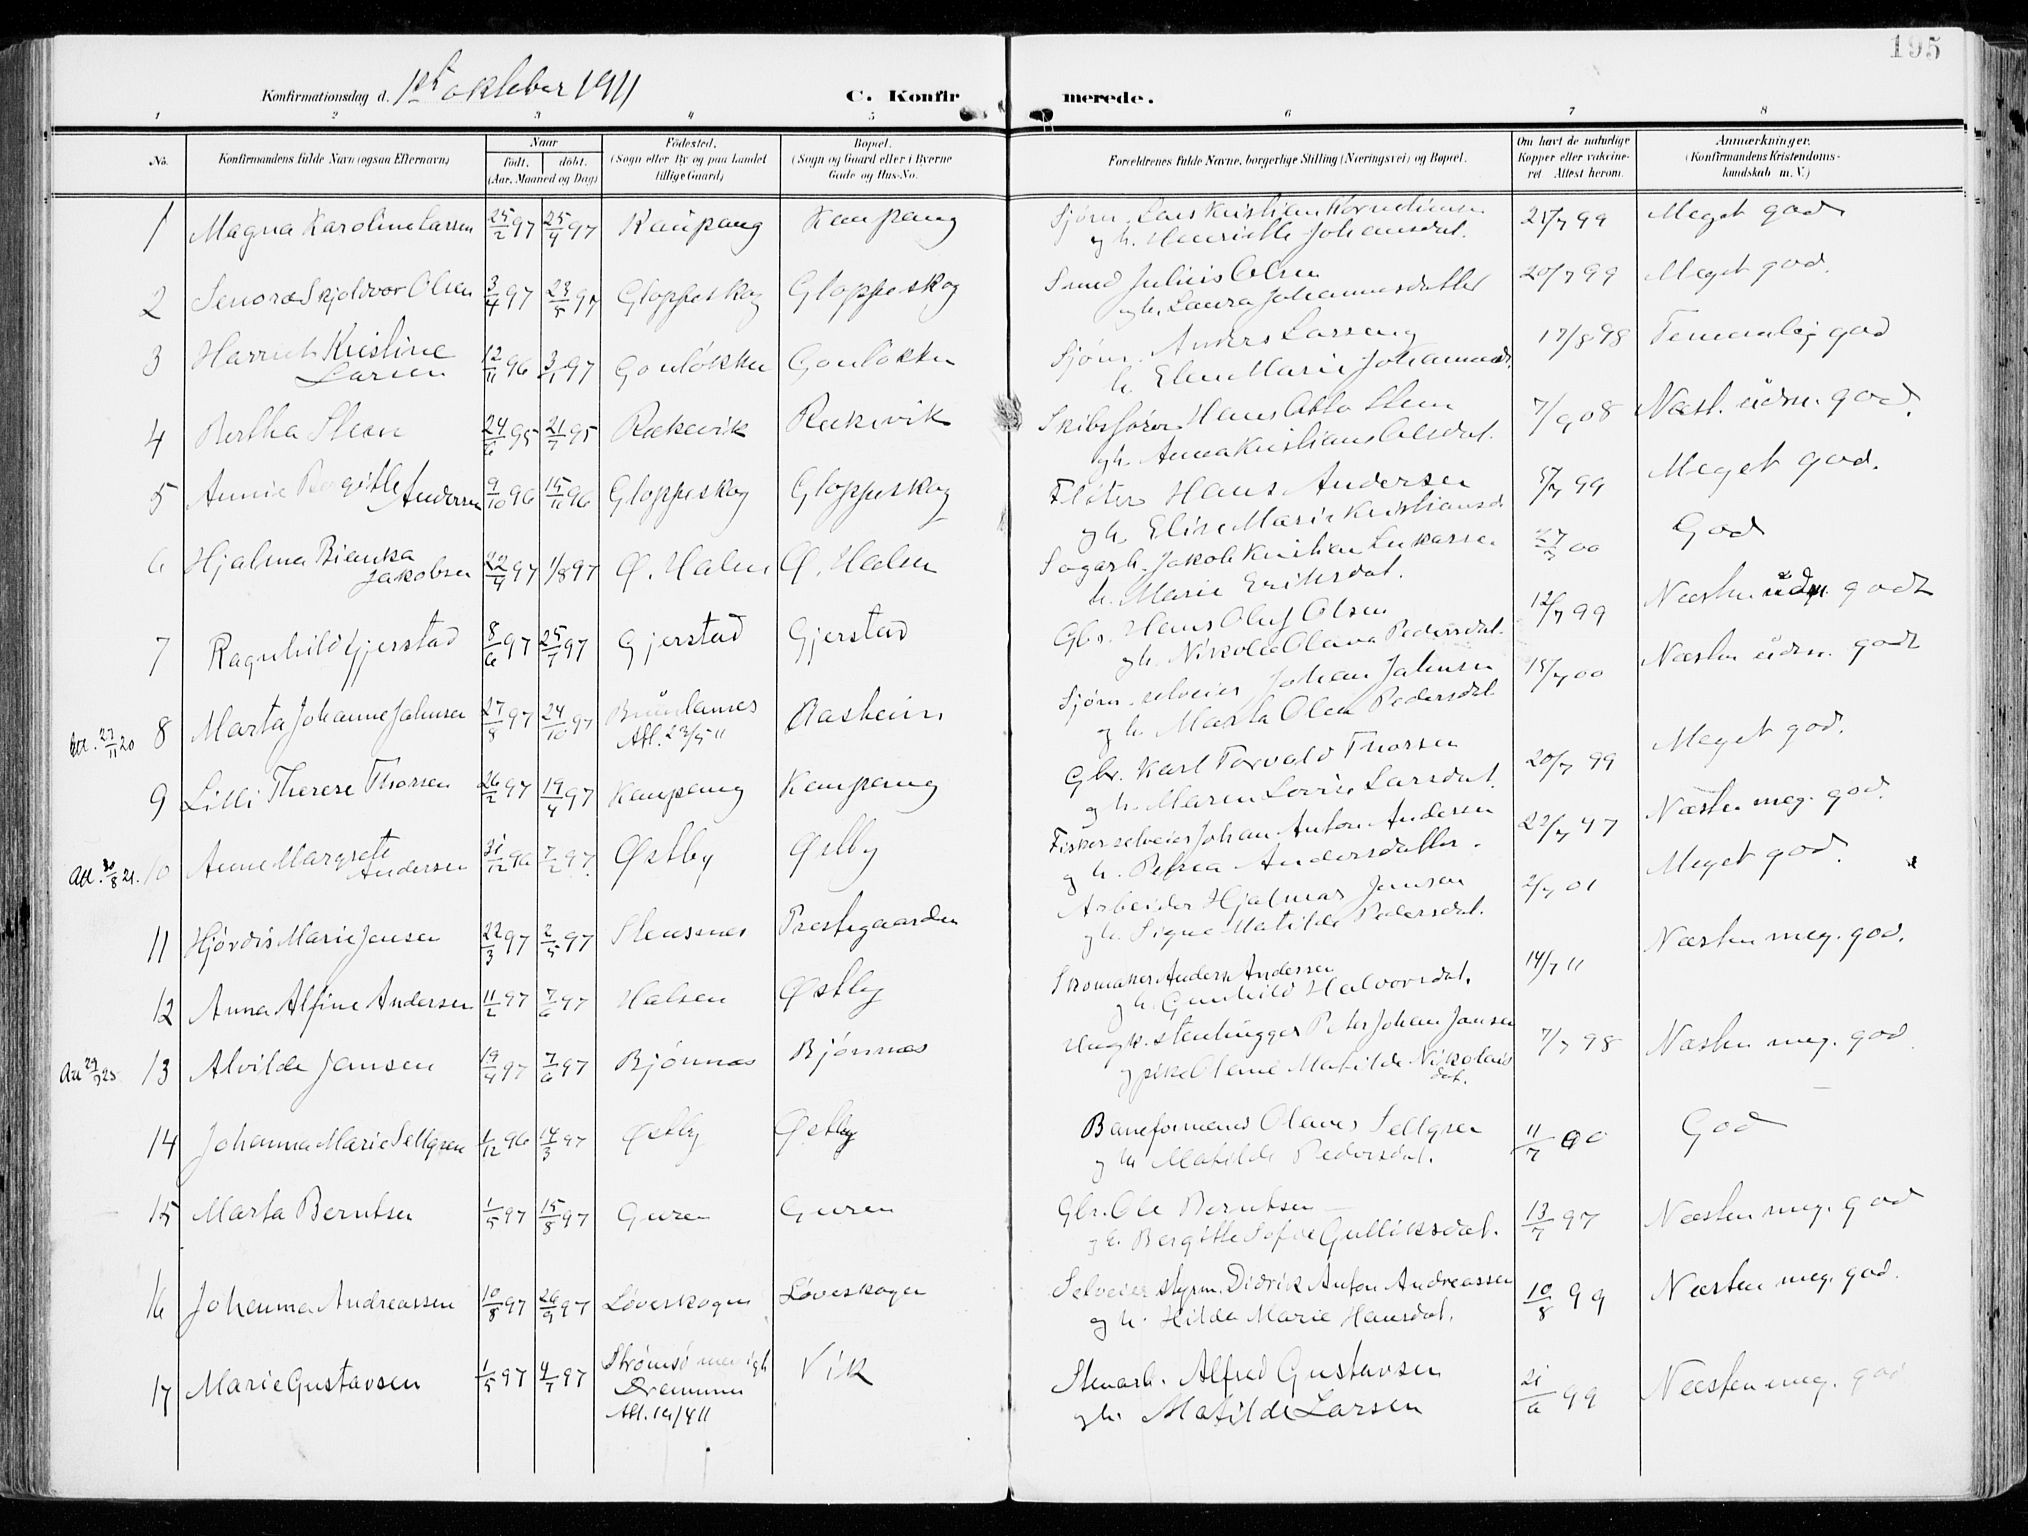 195
Konfirmationsdag d. 1ste oktober 1911
C. Konfirmerede.
1 2 3 4 5 6 7 8
No.
Konfirmandens fulde Navn (ogsaa Efternavn)
Naar
født. døbt.
(Aar, Maaned og Dag)
Fødested.
(Sogn eller By og paa Landet
tillige Gaard)
Bopæl.
(Sogn og Gaard eller i Byerne
Gade og Hus-No.
Forældrenes fulde Navne, borgerlige Stilling (Næringsvei) og Bopæl.
Om havt de naturlige
Kopper eller vakcine-
ret Attest herom.
Anmærkninger.
(Konfirmandens Kristendoms-
kundskab m. V.)
1 Magna Karoline Larsen 25/2 97 25/4 97 Kaupang Kaupang Sjøm. Lars Kristian
og h. Henriette Johansdat. 25/7 99 Meget god
2 Skjoldvor Olsen 3/4 97 23/5 97 Gloppeskog Gloppeskog Smed Julius Olsen
og h. Laura Johannesdatter 20/7 99 Meget god.
3 Harriet Kristine
Larsen 12/11 96 3/1 97 Gonløkka Gonløkken Sjøm. Anders Larsen og
h. Elen Marie 17/8 98 Temmelig god
4 Bertha Steen 24/6 95 21/7 95 Rækevik Rækevik Skibsfører Hans Otto Steen
og h. Anna Kristiane Olsdat. 7/9 08 Næst. udm. god.
5 Annie Bergitte
Andersen 9/10 96 15/11 96 Gloppeskog Gloppeskog Fløter Hans Andersen
og h. Elise Marie Kristiansd. 99 Meget god.
6 Hjalma Bianka
Jakobsen 22/4 97 1/8 97 Ø. Halsen Ø. Halsen Sagarb. Jakob Kristian
h. Marie Eriksdat. 27/7 00 God
7 Ragnhild Gjerstad 8/6 97 25/7 97 Gjerstad Gjerstad Gbr. Hans Oluf Olsen
og h. Nikolea Olava Pedersdat. 12/7 99 Næsten udm. godt
Att. 27/11 20 8 Marta Johanne Jahnsen 27/8 97 24/10 97 Brunlanes
Att. 23/5 11 Aasheim Sjøm. selveier Johan Jahnsen
og h. Marta Olea Pedersdat. 15/7 00 Næsten udm. godt
9 Lilli Therese Thorsen 26/2 97 19/4 97 Kaupang Kaupang Gbr. Karl Torvald Thorsen
og h. Maren Lovise Larsdat. 20/7 99 Meget god.
Att. 30/8 21. 10 Anne Margrete
Andersen 31/12 96 7/2 97. Østby Østby Fisker selveier Johan Anton Andersen
og h. Petrea Andersdatter. 22/7 97 Næsten meg. god.
11 Hjørdis Marie Jensen 22/3 97 2/5 97 Stensnes Prestegaarden Arbeider Hjalmar Jensen
og h. Signe Matilde Pedersdat. 2/7 01 Meget god.
12 Anna Alfine Andersen 11/2 97 7/6 97 Halsen Østby Skomaker Anders Andersen
og h. Gunhild Halvorsdat. 14/7 11 Næsten meg. god.
Att 13 Alvilde Jansen 19/4 97 7/6 97 Bjønnes Bjønnes Ungk. stenhugger Peter Johan Jansen
og pike Olene Matilde Nikolais
dat. 7/7 98 Næsten meg. god.
14 Johanna Marie Sellgren 1/12 96 14/3 97 Østby Østby Baneformand Olaves Sellgren
og h. Matilde Pedersdat. 11/7 00 God
15 Marta Berntsen 1/5 97 15/8 97 Guren Guren Gbr. Ole Berntsen
og h. Bergitte Sofie Gulliksdat. 13/7 97 Næsten meg. god
16 Johanna Andreassen 10/8 97 26/9 97 Løveskogen Løveskogen Selveier styrm. Didrik Anton Andreassen
og h. Hilda Marie Hansdat. 10/8 99 Næsten meg. god.
17 Marie Gustavsen 1/5 97 4/7 97 Strømsø menigh
Drammen
Att. 19/4 11 Vik Stenarb. Alfred Gustavsen
og h. Matilde Larsen 21/6 99 Næsten meg. god